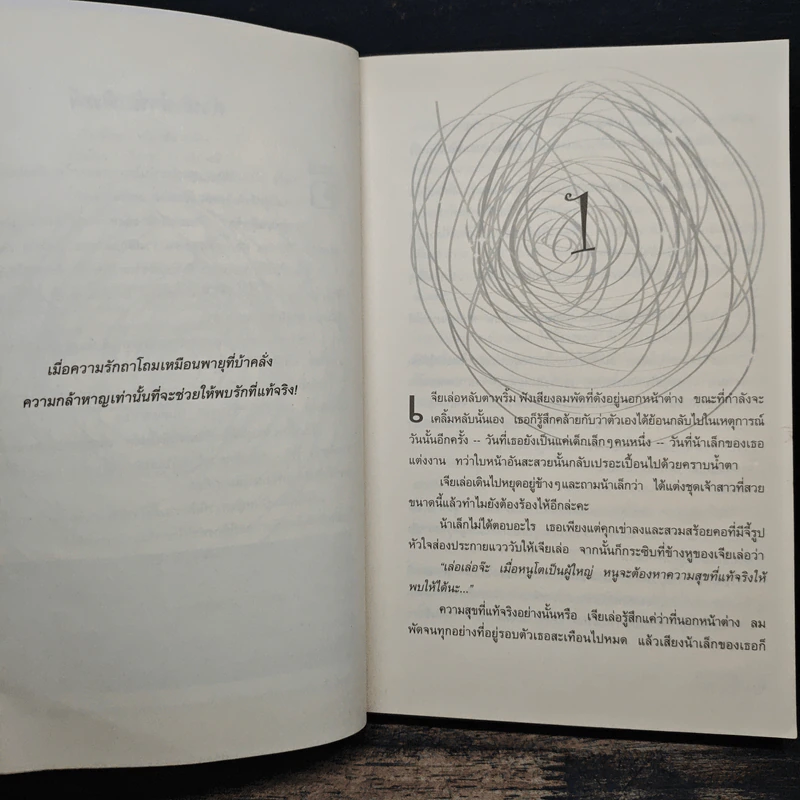 เมื่อความรักถาโถมเหมือนพายุที่บ้าคลั่ง
ความกล้าหาญเท่านั้นที่จะช่วยให้พบรักที่แท้จริง!
1
เจียเล่อหลับตาพริ้ม ฟังเสียงลมพัดที่ดังอยู่นอกหน้าต่าง ขณะที่กำลังจะ
เคลิ้มหลับนั้นเอง เธอก็รู้สึกคล้ายกับว่าตัวเองได้ย้อนกลับไปในเหตุการณ์
วันนั้นอีกครั้ง -- วันที่เธอยังเป็นแค่เด็กเล็กๆคนหนึ่ง -- วันที่น้าเล็กของเธอ
แต่งงาน ทว่าใบหน้าอันสะสวยนั้นกลับเปรอะเปื้อนไปด้วยคราบน้ำตา
เจียเล่อเดินไปหยุดอยู่ข้างๆและถามน้าเล็กว่า ได้แต่งชุดเจ้าสาวที่สวย
ขนาดนี้แล้วทำไมยังต้องร้องไห้อีกล่ะคะ
น้าเล็กไม่ได้ตอบอะไร เธอเพียงแต่คุกเข่าลงและสวมสร้อยคอที่มีจี้รูป
หัวใจส่องประกายแวววับให้เจียเล่อ จากนั้นก็กระซิบที่ข้างหูของเจียเล่อว่า
“เล่อเล่อจ๊ะ เมื่อหนูโตเป็นผู้ใหญ่ หนูจะต้องหาความสุขที่แท้จริงให้
พบให้ได้นะ...”
ความสุขที่แท้จริงอย่างนั้นหรือ เจียเล่อรู้สึกแค่ว่าที่นอกหน้าต่าง ลม
พัดจนทุกอย่างที่อยู่รอบตัวเธอสะเทือนไปหมด แล้วเสียงน้าเล็กของเธอก็